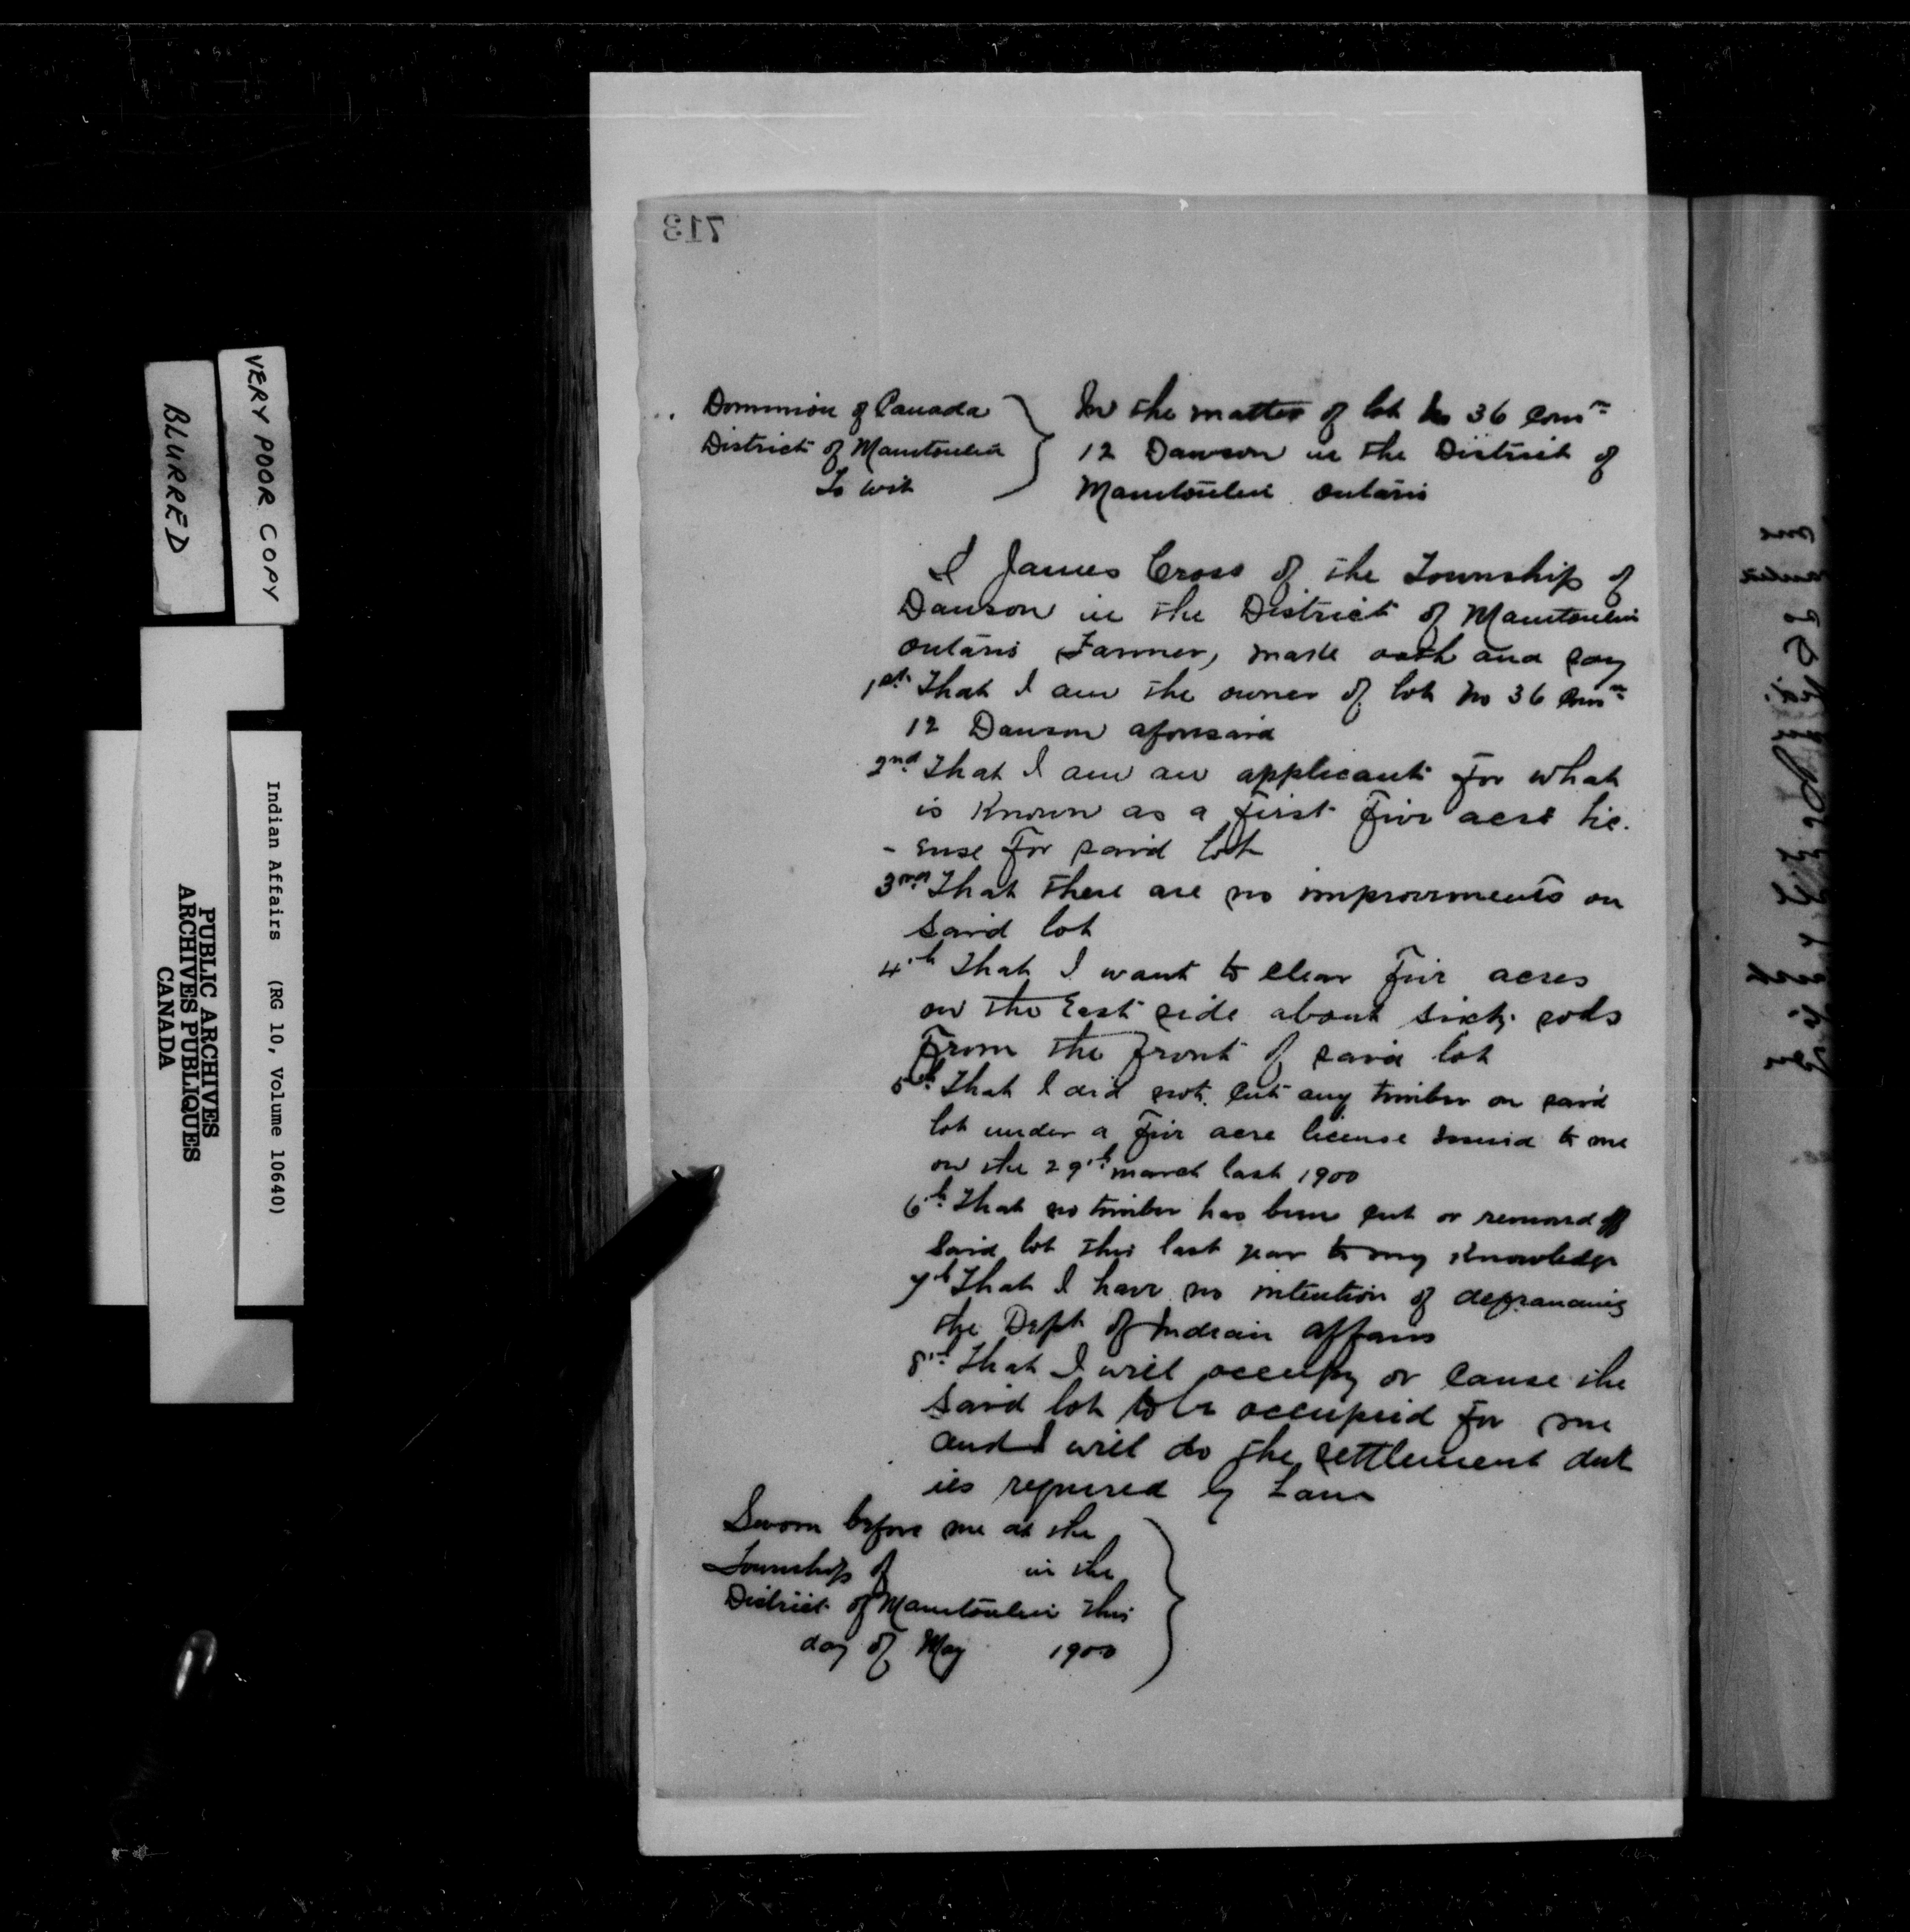 713
Dominion of Canada
District of Manitoulin
To wit
In the matter of lot No 36 Conn
12 Dawson in the District of
Manitoulin Ontario
I James Cross of the Township of
Dawson in the District of Manitoulin
Ontario Farmer, make oath and say
1st That I am the owner of lot No 36 Conn
12 Dawson aforesaid
2nd That I am an applicant for what
is Known as a first five acre lic.
- ense for said lot
3rd That there are no improvements on
said lot
4th That I want to clear five acres
on the East side about sixty rods
From the front of said lot
5th That I did not cut any timber on said
lot under a five acre license issued to me
on the 29th march last 1900
6th That no timber has been cut or removed off
said lot this last year to my Knowledge
7th That I have no intention of defrauding
the Dept of Indian affairs
8th That I will occupy or cause the
said lot to be occupied for me
and I will do the settlement dut
ies required by Law
Sworn before me at the
Township of in the
District of Manitoulin this
day of May 1900
VERY POOR COPY
BLURRED
Indian Affairs (RG 10, Volume 10640)
PUBLIC ARCHIVES
ARCHIVES PUBLIQUES
CANADA